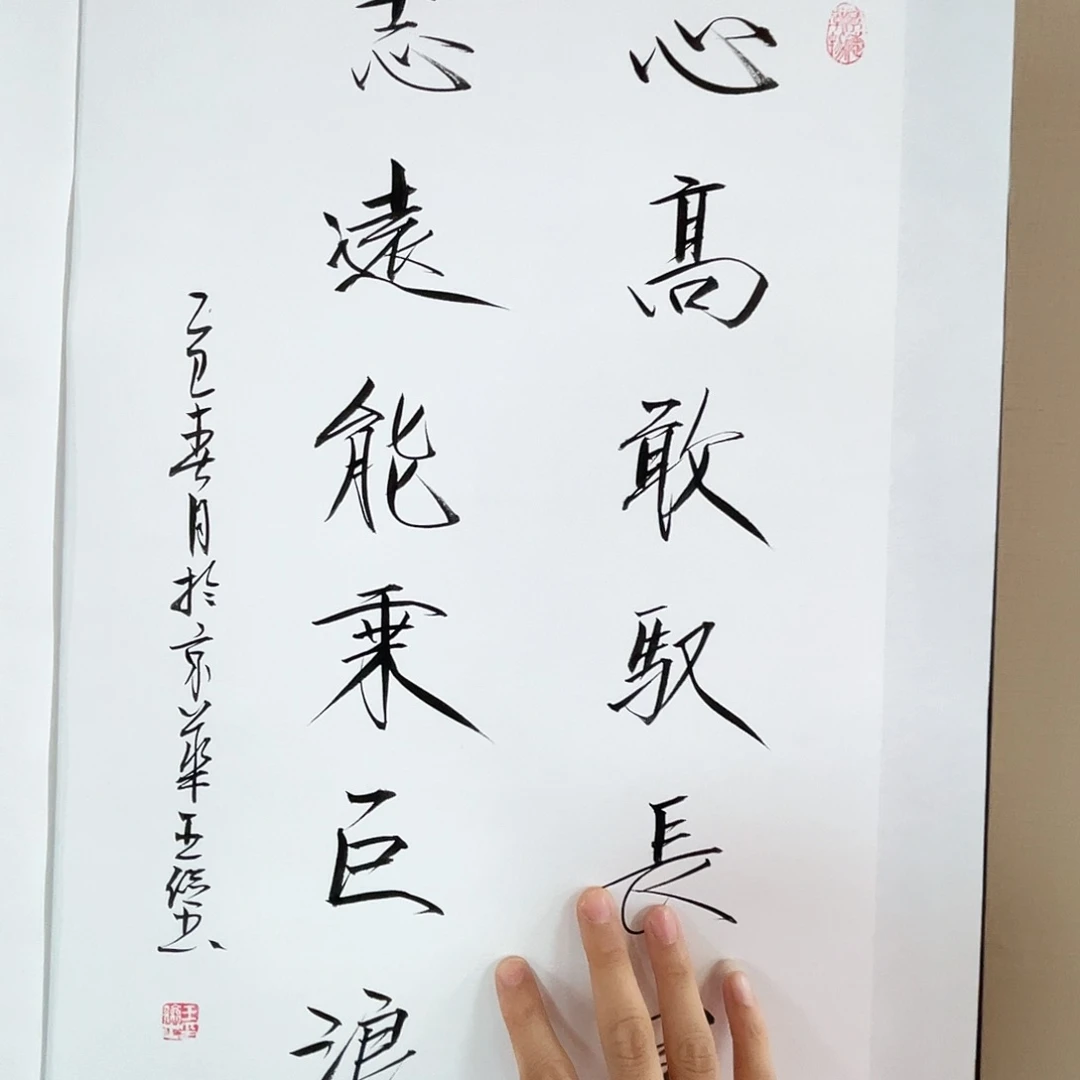 心高敢馭長
志遠能乗巨浪
乙巳春月於京華王